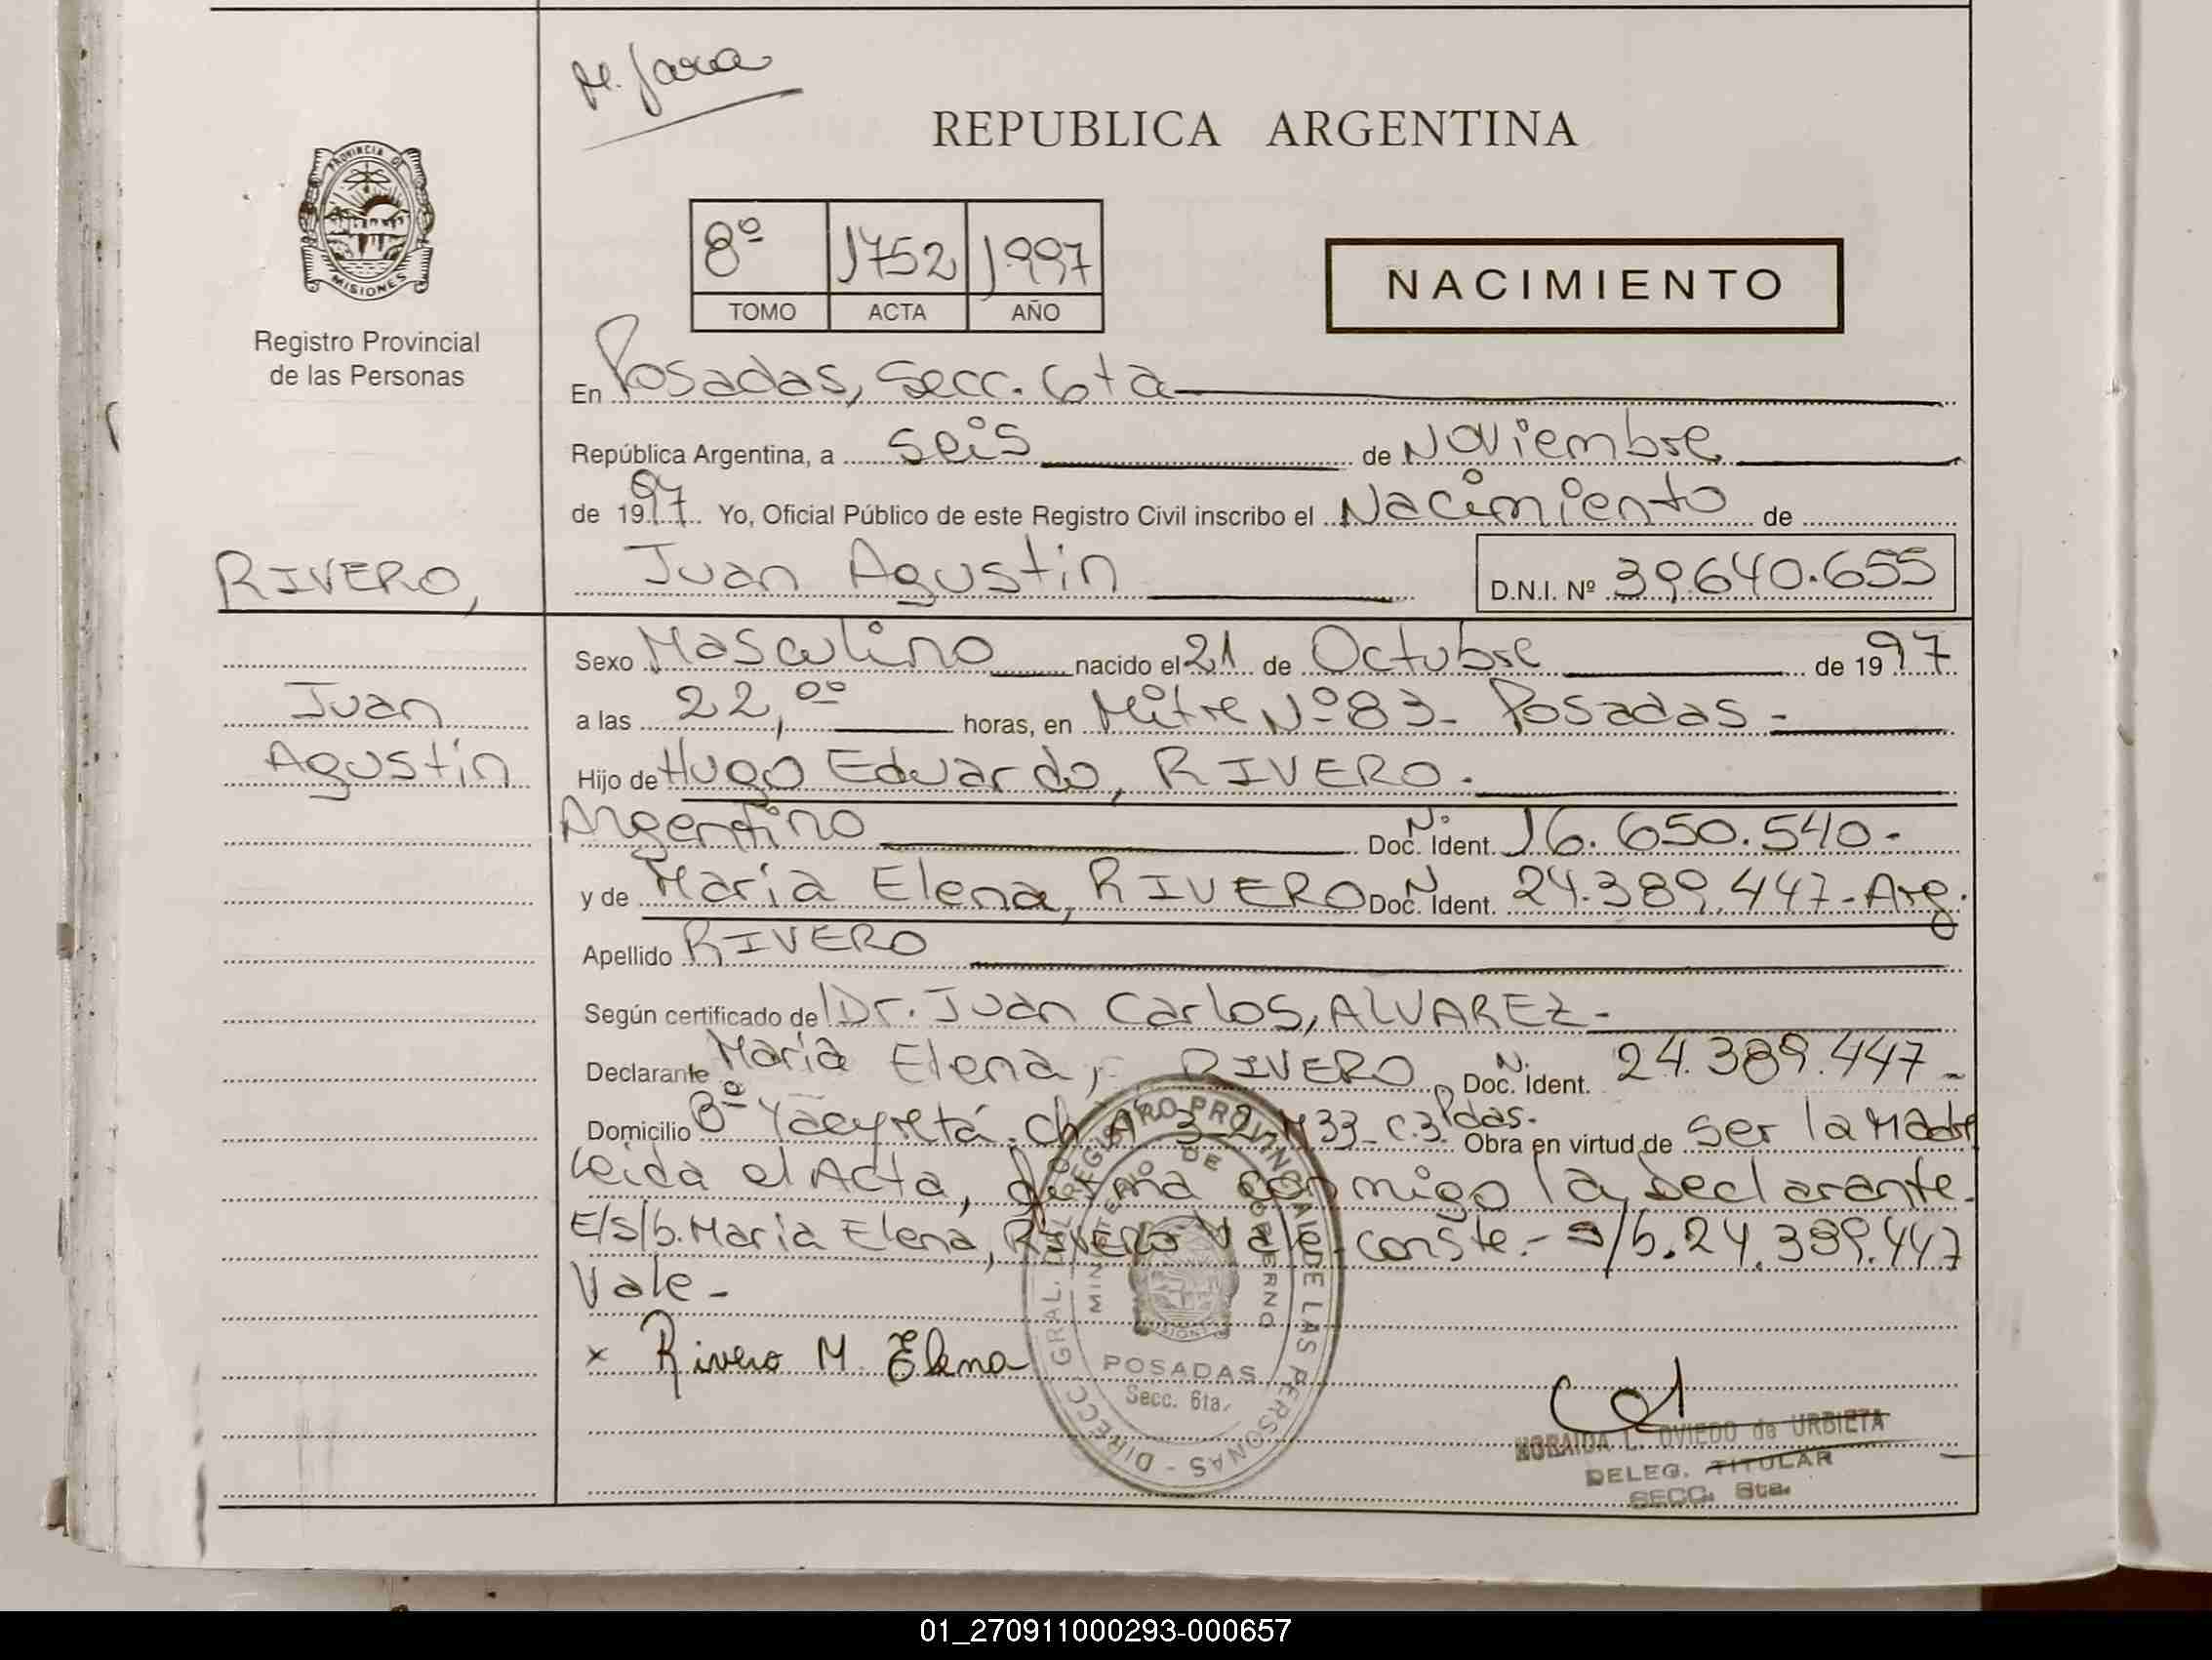 M. Jara
REPUBLICA ARGENTINA
PROVINCIA DE
MISIONES
Registro Provincial
de las Personas
8º 1752 1997
TOMO ACTA AÑO
NACIMIENTO
En Posadas, Secc. 6ta
República Argentina, a seis de Noviembre
de 1997. Yo, Oficial Público de este Registro Civil inscribo el Nacimiento de
RIVERO, Juan Agustín D.N.I. Nº 39.640.655
Sexo Masculino nacido el 21 de Octubre de 1997
Juan a las 22,oo horas, en Mitre Nº 83- Posadas -
Agustín Hijo de Hugo Eduardo, RIVERO.
Argentino Doc. N. Ident. 16.650.540-
y de María Elena, RIVERO Doc. N. Ident. 24.389.447-Arg.
Apellido RIVERO
Según certificado del Dr. Juan Carlos, ALVAREZ-
Declarante María Elena, RIVERO Doc. N. Ident. 24.389.447-
Domicilio Bº Yacyretá. Ch. A 3-2 M33-C.3 Pdas. Obra en virtud de ser la Madre
Leida el Acta, firma conmigo la Declarante.
E/s/b. María Elena, RIVERO Vale conste.- s/b.24.389.447
Vale-
x Rivero M. Elena
DIRECC. GRAL. DEL REGISTRO PROVINCIAL DE LAS PERSONAS
MINISTERIO DE GOBIERNO
POSADAS
Secc. 6ta.
NORAIDA L. OVIEDO de URBIETA
DELEG. TITULAR
SECC. 6ta.
01_270911000293-000657